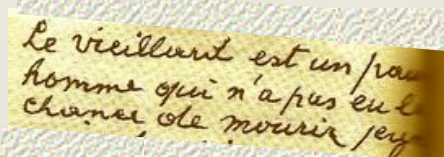 Le vieillard est un pau
homme qui n'a pas eu l
chance de mourir jeu